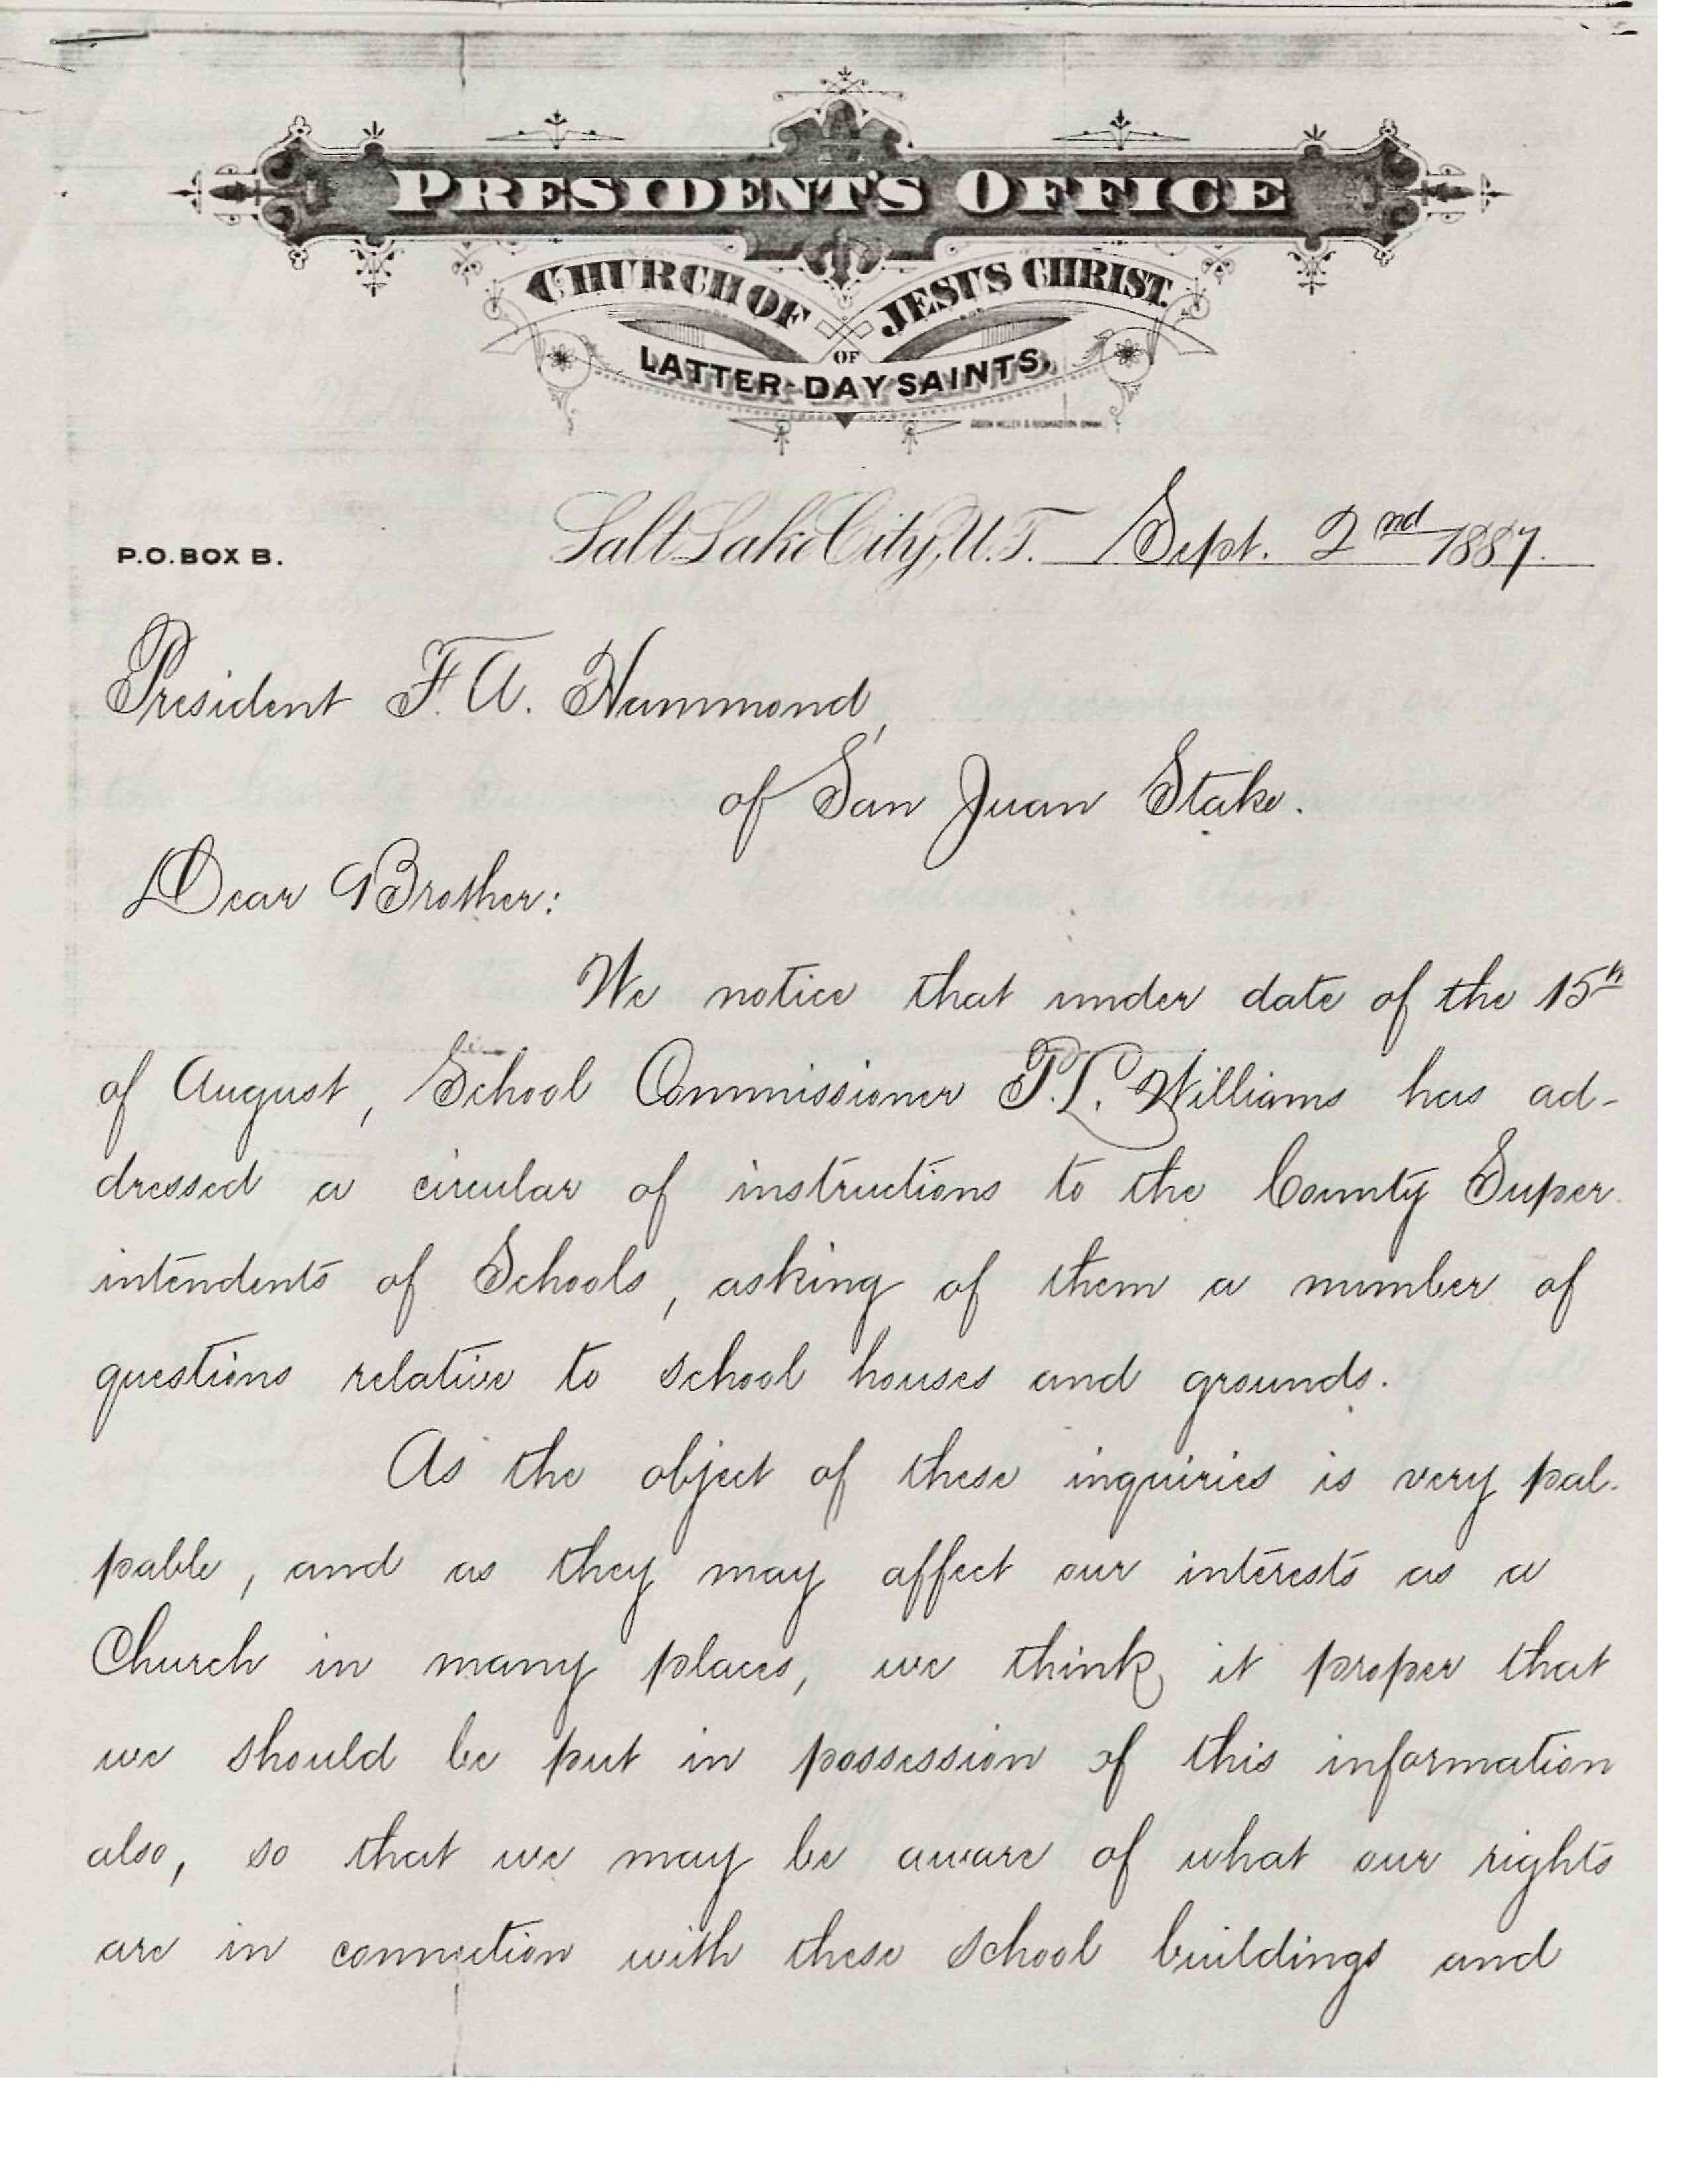 PRESIDENT'S OFFICE
CHURCH OF JESUS CHRIST
OF
LATTER-DAY SAINTS.
P.O. BOX B.
Salt Lake City, U.T. Sept. 2nd 1887.
President F. A. Hammond,
of San Juan Stake.
Dear Brother:
We notice that under date of the 15th
of August, School Commissioner P. L. Williams has ad-
dressed a circular of instructions to the County Super
intendents of Schools, asking of them a number of
questions relative to school houses and grounds.
As the object of these inquiries is very pal-
pable, and as they may affect our interests as a
Church in many places, we think it proper that
we should be put in possession of this information
also, so that we may be aware of what our rights
are in connection with these school buildings and